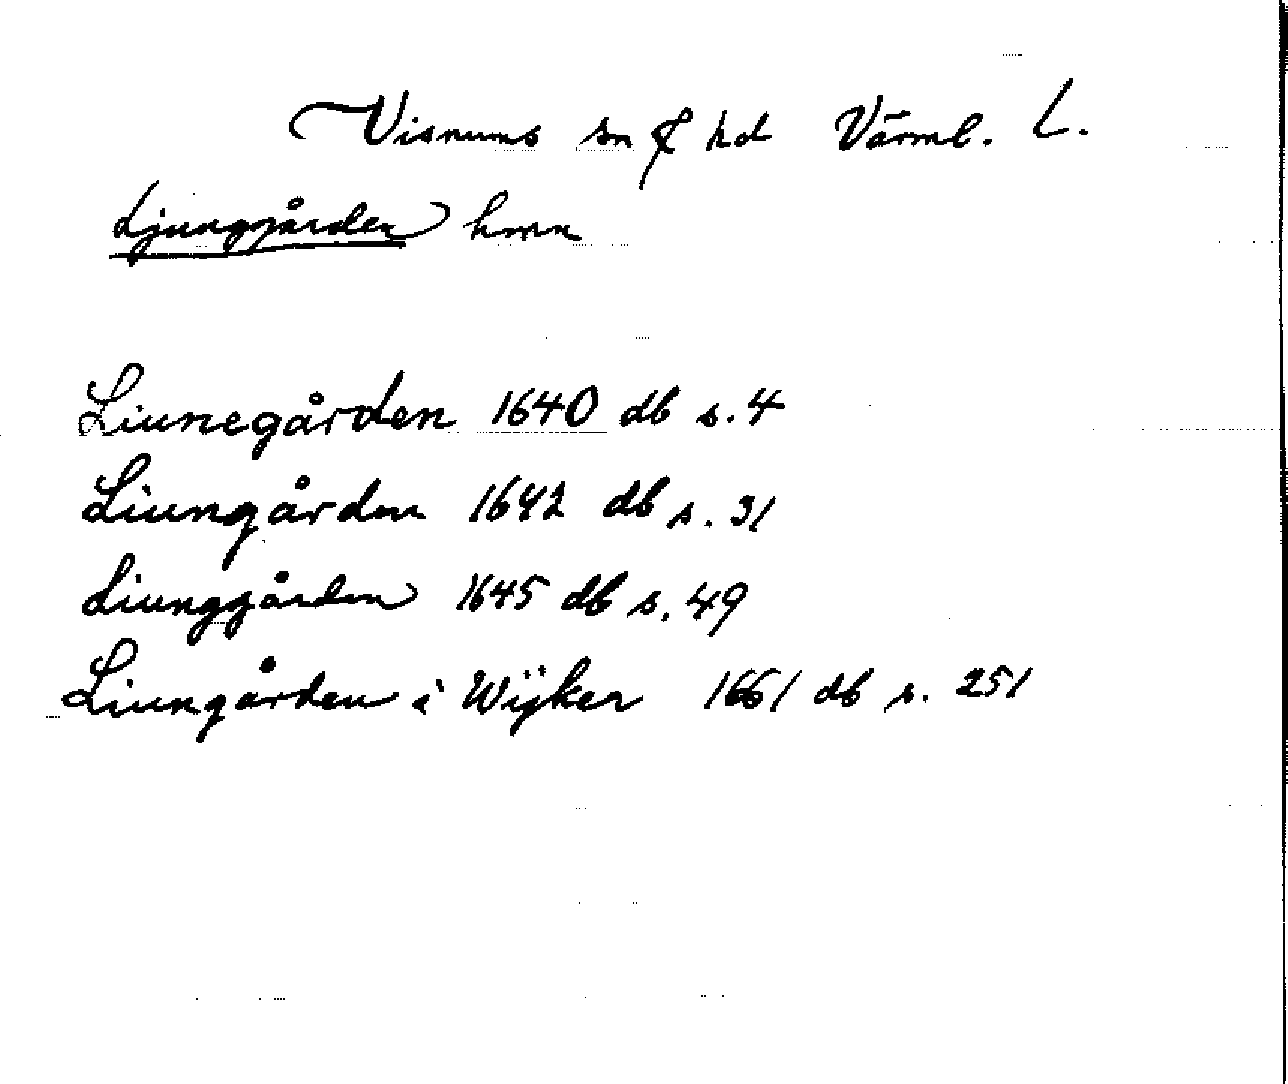 Visnums sn & hd Värml. L.
Ljunggården hmn
Liunegården 1640 db s. 4
Liungården 1642 db s. 31
Liunggården 1645 db s. 49
Liungården i Wÿker 1661 db s. 251